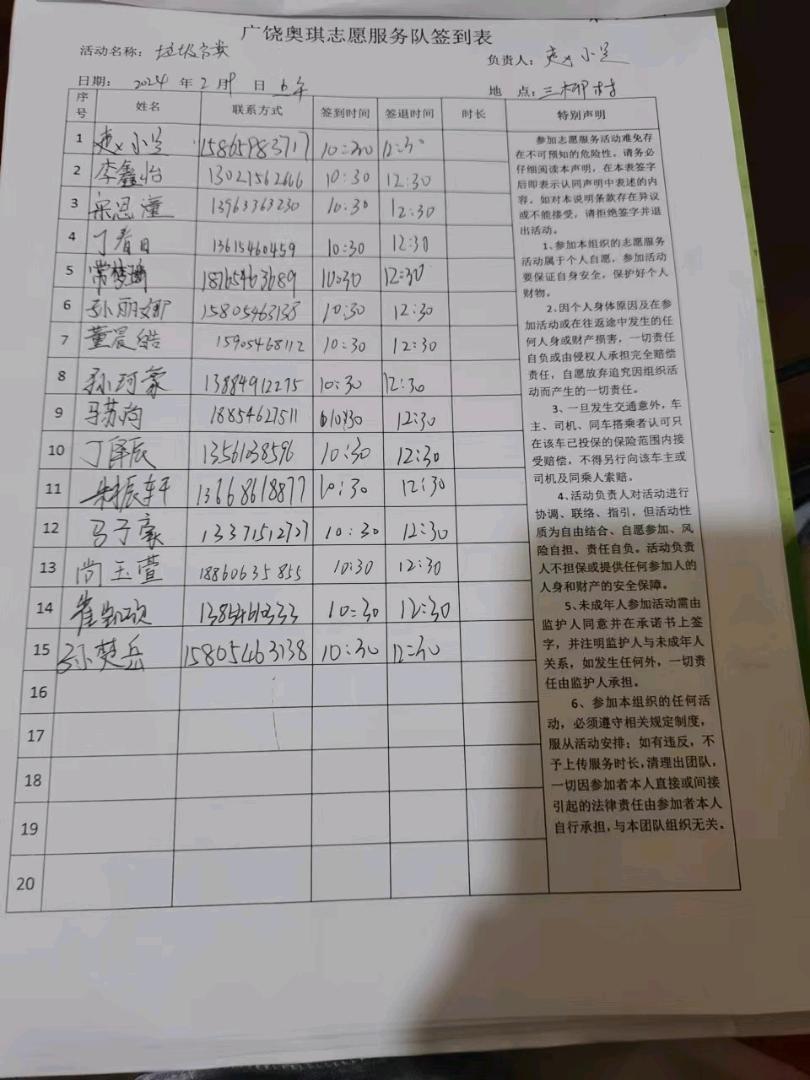 广饶奥琪志愿服务队签到表
活动名称： 垃圾分类 负责人： 赵小兰
日期： 2024 年 2 月 9 日 上午 地 点：三柳村
序号 姓名 联系方式 签到时间 签退时间 时长 特别声明
1 赵小兰 15865983717 10:30 12:30
2 李鑫怡 13021562666 10:30 12:30
3 宋思潼 13963363230 10:30 12:30
4 丁春日 13615460459 10:30 12:30
5 常梦瑜 18765463689 10:30 12:30
6 孙丽娜 15805463138 10:30 12:30
7 董晨皓 15905468112 10:30 12:30
8 孙珂豪 13884912275 10:30 12:30
9 马苏 18854627511 10:30 12:30
10 丁泽辰 13561038596 10:30 12:30
11 朱振轩 13668618877 10:30 12:30
12 马子豪 13371512727 10:30 12:30
13 尚玉萱 18860635855 10:30 12:30
14 崔 10:30 12:30
15 孙楚岳 15805463138 10:30 12:30
16
17
18
19
20
参加志愿服务活动难免存
在不可预知的危险性。请务必
仔细阅读本声明，在本表签字
后即表示认同声明中表述的内
容。如对本说明条款存在异议
或不能接受，请拒绝签字并退
出活动。
1、参加本组织的志愿服务
活动属于个人自愿，参加活动
要保证自身安全，保护好个人
财物。
2、因个人身体原因及在参
加活动或在往返途中发生的任
何人身或财产损害，一切责任
自负或由侵权人承担完全赔偿
责任，自愿放弃追究因组织活
动而产生的一切责任。
3、一旦发生交通意外，车
主、司机、同车搭乘者认可只
在该车已投保的保险范围内接
受赔偿，不得另行向该车主或
司机及同乘人索赔。
4、活动负责人对活动进行
协调、联络、指引，但活动性
质为自由结合、自愿参加、风
险自担、责任自负。活动负责
人不担保或提供任何参加人的
人身和财产的安全保障。
5、未成年人参加活动需由
监护人同意并在承诺书上签
字，并注明监护人与未成年人
关系，如发生任何外，一切责
任由监护人承担。
6、参加本组织的任何活
动，必须遵守相关规定制度，
服从活动安排；如有违反，不
予上传服务时长，清理出团队，
一切因参加者本人直接或间接
引起的法律责任由参加者本人
自行承担，与本团队组织无关。